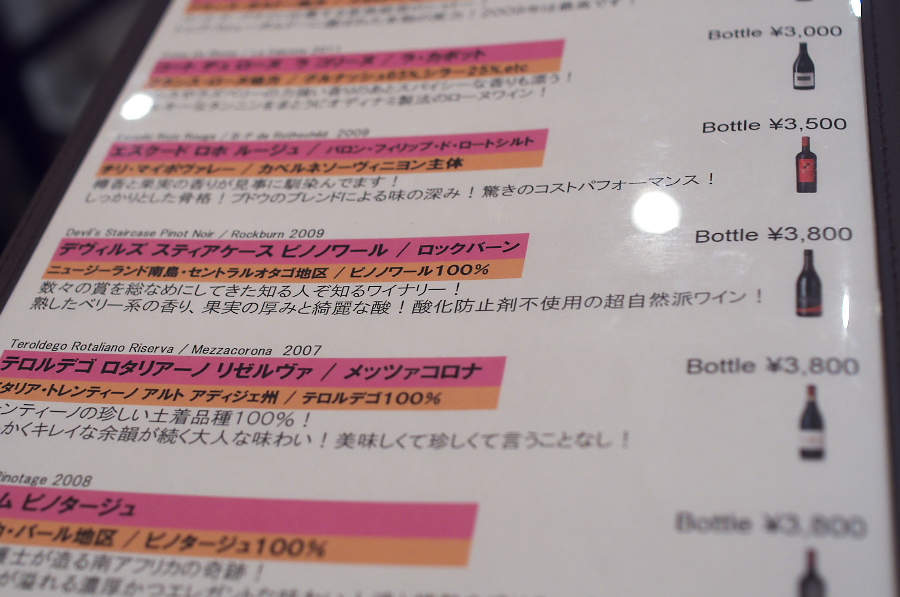 Bottle ¥3,000
コート デュ ローヌ ラ ゴリーヌ / ラ・カボット
グルナッシュ65%,シラー25%,etc
2009
Bottle ¥3,500
エスクード ロホ ルージュ / バロン・フィリップ・ド・ロートシルト
チリ・マイポヴァレー / カベルネソーヴィニヨン主体
樽香と果実の香りが見事に馴染んでます！
しっかりとした骨格！ブドウのブレンドによる味の深み！驚きのコストパフォーマンス！
Devil's Staircase Pinot Noir / Rockburn 2009
Bottle ¥3,800
デヴィルズ スティアケース ピノノワール / ロックバーン
ニュージーランド南島・セントラルオタゴ地区 / ピノノワール100%
数々の賞を総なめにしてきた知る人ぞ知るワイナリー！
熟したベリー系の香り、果実の厚みと綺麗な酸！酸化防止剤不使用の超自然派ワイン！
Teroldego Rotaliano Riserva / Mezzacorona 2007
Bottle ¥3,800
テロルデゴ ロタリアーノ リゼルヴァ / メッツァコロナ
タリア・トレンティーノ アルト アディジェ州 / テロルデゴ100%
ンティーノの珍しい土着品種100%！
かくキレイな余韻が続く大人な味わい！美味しくて珍しくて言うことなし！
inotage 2008
Bottle ¥3,800
ム ピノタージュ
・パール地区 / ピノタージュ100%
士が造る南アフリカの奇跡！
が溢れる濃厚かつエレガントな